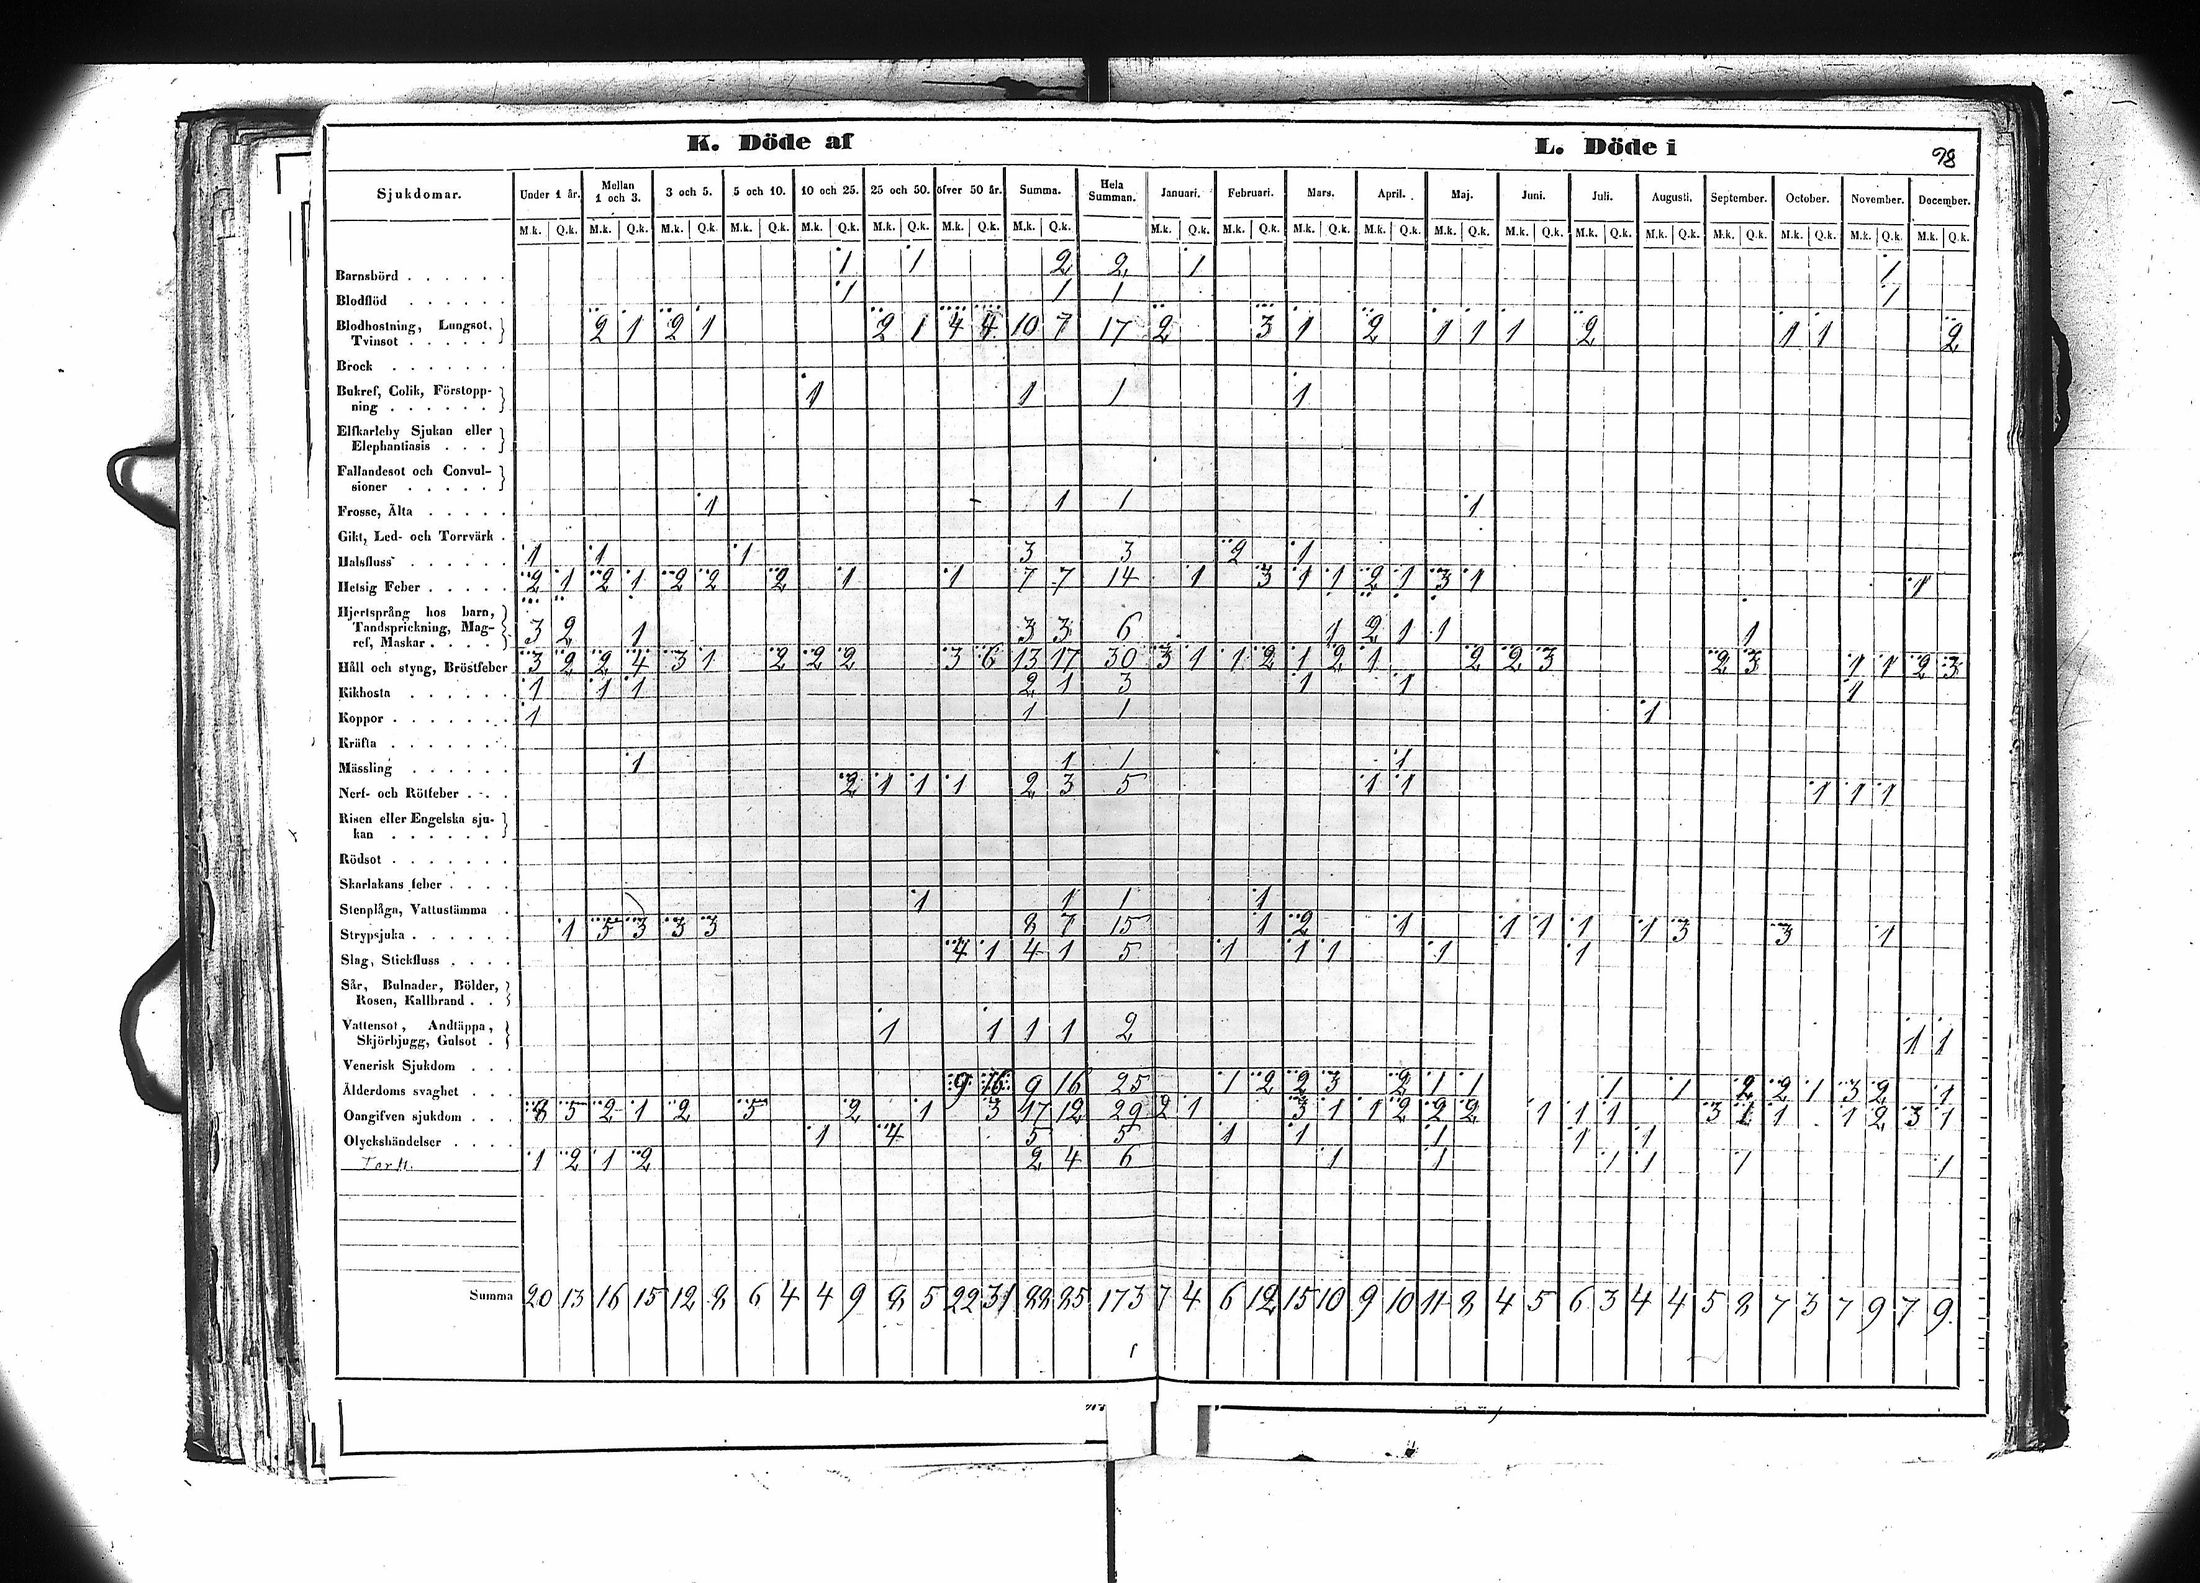 K. Döde af L. Döde i 98
Sjukdomar. Under 1 år. Mellan 1 och 3. 3 och 5. 5 och 10. 10 och 25. 25 och 50. öfver 50 år. Summa. Hela Summan. Januari. Februari. Mars. April. Maj. Juni. Juli. Augusti. September. October. November. December.
M.k. Q.k. M.k. Q.k. M.k. Q.k. M.k. Q.k. M.k. Q.k. M.k. Q.k. M.k. Q.k. M.k. Q.k. M.k. Q.k. M.k. Q.k. M.k. Q.k. M.k. Q.k. M.k. Q.k. M.k. Q.k. M.k. Q.k. M.k. Q.k. M.k. Q.k. M.k. Q.k. M.k. Q.k. M.k. Q.k.
Barnsbörd . . . . . . 1 1 2 2 1 1
Blodflöd . . . . . . 1 1 1 1
Blodhostning, Lungsot,
Tvinsot . . . . . 2 1 2 1 2 1 4 4 10 7 17 2 3 1 2 1 1 1 2 1 1 2
Brock . . . . . . .
Bukref, Colik, Förstopp-
ning . . . . . . 1 1 1 1
Elfkarleby Sjukan eller
Elephantiasis . . .
Fallandesot och Convul-
sioner . . . . .
Frosse, Älta . . . . . 1 1 1 1
Gikt, Led- och Torrvärk .
Halsfluss . . . . . . 1 1 1 3 3 2 1
Hetsig Feber . . . . . 2 1 2 1 2 2 2 1 1 7 7 14 1 3 1 1 2 1 3 1 1
Hjertsprång hos barn,
Tandsprickning, Mag-
ref, Maskar . . . . 3 2 1 3 3 6 1 2 1 1 1
Håll och styng, Bröstfeber 3 2 2 4 3 1 2 2 2 3 6 13 17 30 3 1 1 2 1 2 1 2 2 3 2 3 1 1 2 3
Kikhosta . . . . . . 1 1 1 2 1 3 1 1 1
Koppor . . . . . . . 1 1 1 1
Kräfta . . . . . . .
Mässling . . . . . . 1 1 1 1
Nerf- och Rötfeber . . . 2 1 1 1 2 3 5 1 1 1 1 1
Risen eller Engelska sju-
kan . . . . . .
Rödsot . . . . . . .
Skarlakans feber . . . .
Stenplåga, Vattustämma . 1 1 1 1
Strypsjuka . . . . . . 1 5 3 3 3 8 7 15 1 2 1 1 1 1 1 3 3 1
Slag, Stickfluss . . . . 4 1 4 1 5 1 1 1 1 1
Sår, Bulnader, Bölder,
Rosen, Kallbrand . .
Vattensot, Andtäppa,
Skjörbjugg, Gulsot . 1 1 1 1 2 1 1
Venerisk Sjukdom . . .
Ålderdoms svaghet . . . 9 16 9 16 25 1 2 2 3 2 1 1 1 1 2 2 1 3 2 1
Oangifven sjukdom . . . 8 5 2 1 2 5 2 1 3 17 12 29 2 1 3 1 1 2 2 2 1 1 1 3 1 1 1 2 3 1
Olyckshändelser . . . . 1 4 5 5 1 1 1 1 1
1 2 1 2 2 4 6 1 1 1 1 1 1
Summa 20 13 16 15 12 8 6 4 4 9 8 5 22 31 88 85 173 7 4 6 12 15 10 9 10 11 8 4 5 6 3 4 4 5 8 7 3 7 9 7 9.